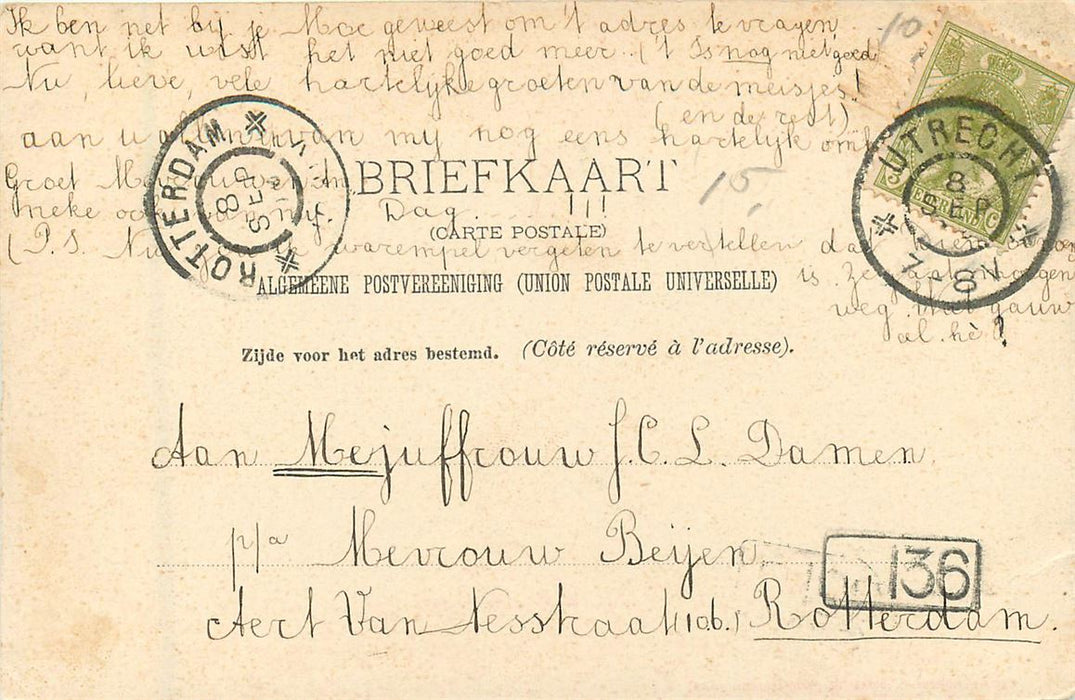 Ik ben net bij je Moe geweest om 't adres te vragen,
want ik wist het niet goed meer. ('t Is nog niet goed
Nu, lieve, vele hartelijke groeten van de meisjes!
(en de rest)
aan u allen en van mij nog eens hartelijk
Groet
Dag !!!
(P.S. warempel vergeten te vertellen dat
is. Ze gaat morgen
weg. Wat gauw
al. hè?
10
15,
BRIEFKAART
(CARTE POSTALE)
ALGEMEENE POSTVEREENIGING (UNION POSTALE UNIVERSELLE)
Zijde voor het adres bestemd. (Côté réservé à l'adresse).
ROTTERDAM
8 SEP
UTRECHT
8 SEP
Aan Mejuffrouw J. C. L. Damen.
p/a Mevrouw Beijen
136
Aert Van Nesstraat 106. Rotterdam.